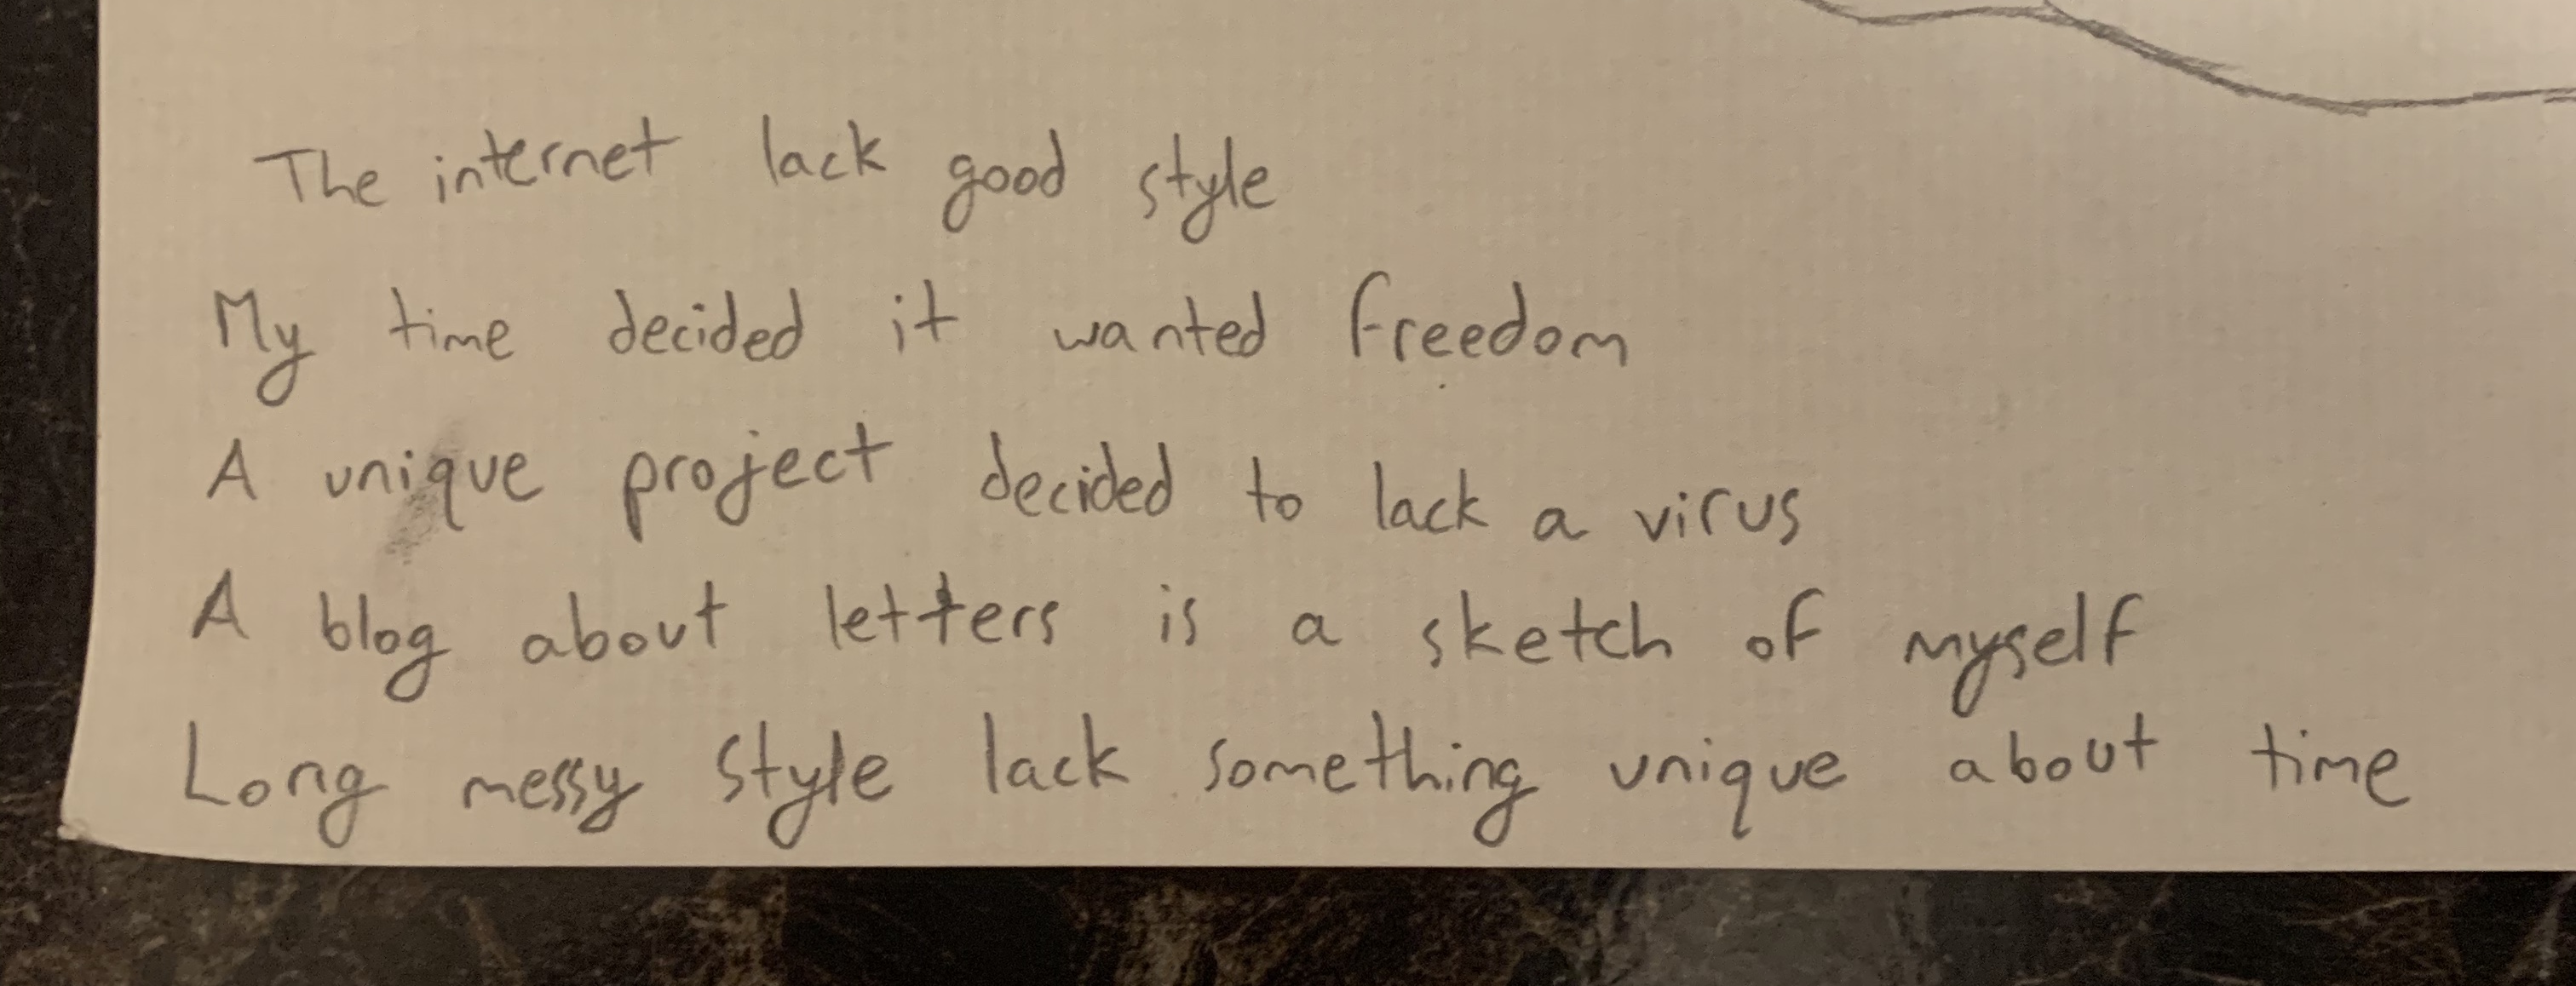 The internet lack good style
My time decided it wanted freedom
A unique project decided to lack a virus
A blog about letters is a sketch of myself
Long messy style lack something unique about time